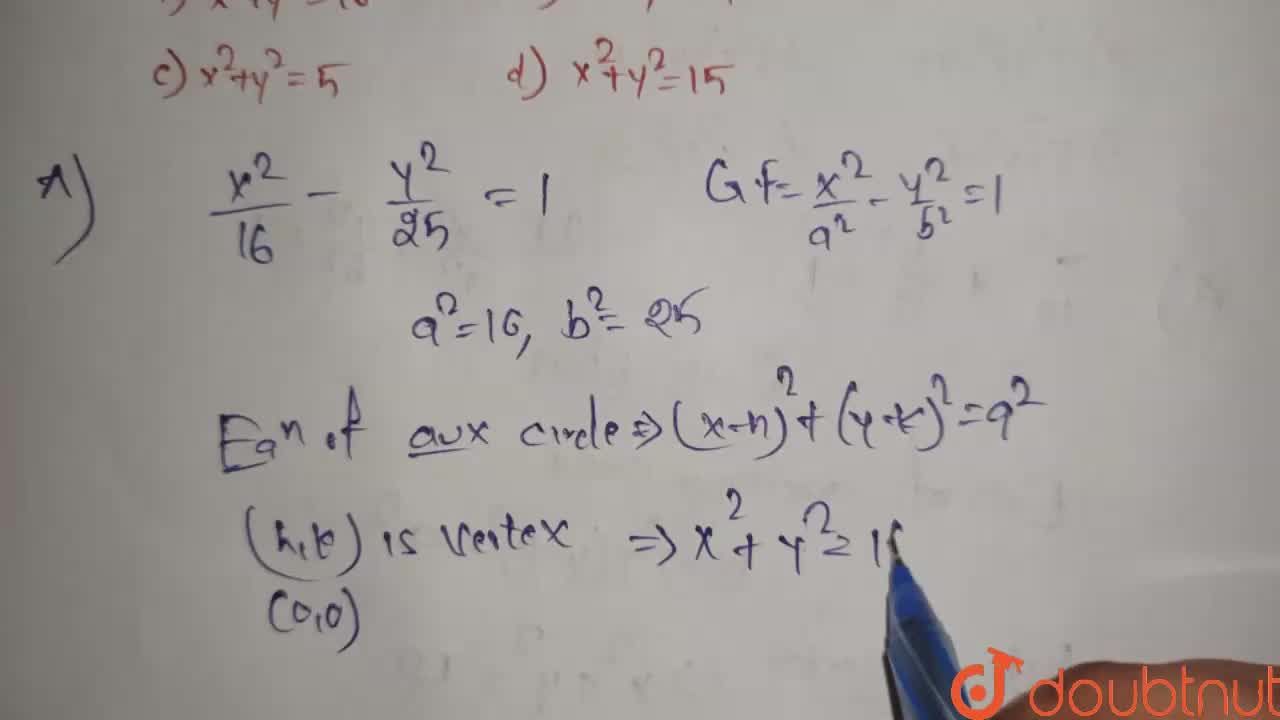 c) x²+y²=5 d) x²+y²=15
A) x²/16 - y²/25 = 1 G F= x²/a² - y²/b² =1
a²=16, b²= 25
Eqn of aux circle ⇒ (x-h)²+(y-k)²=a²
(h,k) is vertex ⇒ x²+y²=16
(0,0)
doubtnut